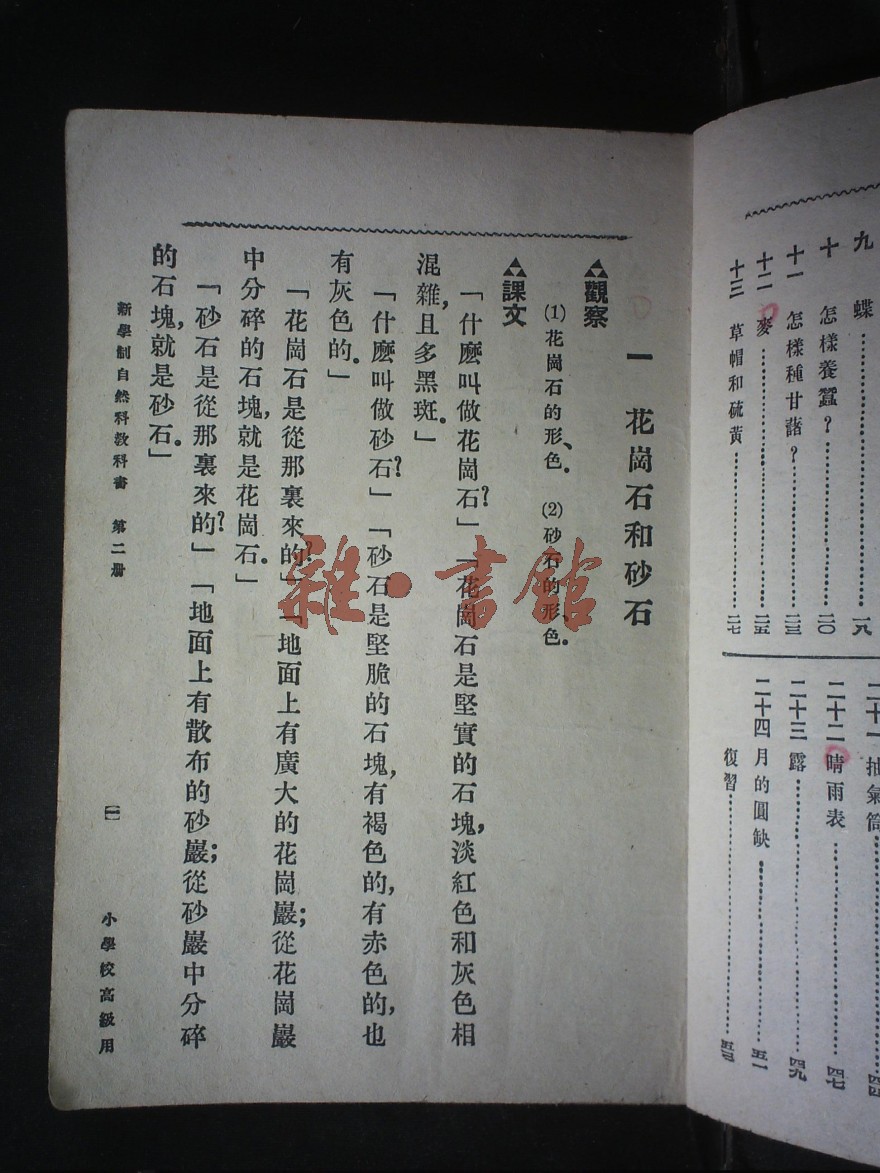 九　蝶……一八
十　怎樣養蠶？……二〇
十一　怎樣種甘藷？……二三
十二　麥……二五
十三　草帽和硫黃……二七
二十一　抽氣筒……四四
二十二　晴雨表……四七
二十三　露……四九
二十四　月的圓缺……五一
復習……五三
一　花崗石和砂石
觀察
(1)花崗石的形、色。　(2)砂石的形、色。
課文
「什麼叫做花崗石？」「花崗石是堅實的石塊，淡紅色和灰色相
混雜，且多黑斑。」
「什麼叫做砂石？」「砂石是堅脆的石塊，有褐色的，有赤色的，也
有灰色的。」
「花崗石是從那裏來的？」「地面上有廣大的花崗巖；從花崗巖
中分碎的石塊，就是花崗石。」
「砂石是從那裏來的？」「地面上有散布的砂巖；從砂巖中分碎
的石塊，就是砂石。」
新學制自然科教科書　第二册
一
小學校高級用
雜·書館